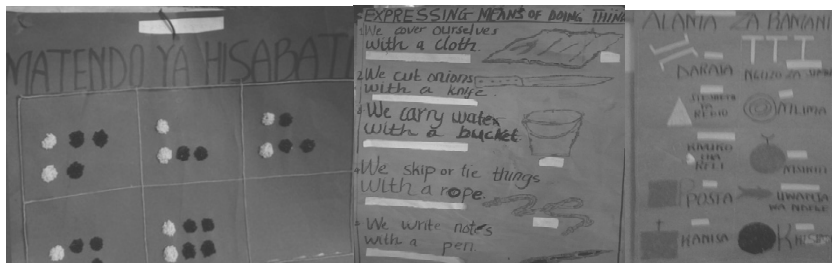 MATENDO YA HISABATI
EXPRESSING MEANS OF DOING THIN
1 We cover ourselves
with a cloth.
2 We cut onions
with a knife.
We carry water
with a bucket
We skip or tie things
with a rope.
We write notes
with a pen
ALAMA ZA RAMANI
DARAJA
NGUZO ZA SIMU
REDIO
MLIMA
KRETI
MSIKITI
POSTA
UWANJA
WA NDEGE
KANISA